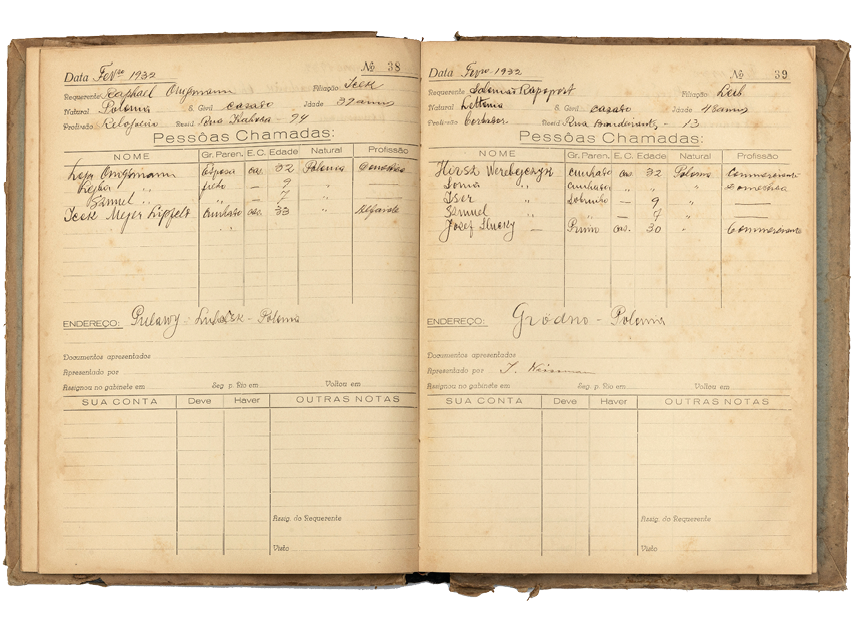 Data Fevro 1932 Nº 38
Requerente Raphael Ongmann Filiação: Icek
Natural Polonia & Civil casado Idade 37 annos
Profissão Relojoeiro Resid Rua 94
Pessôas Chamadas:
NOME Gr. Paren. E. C. Edade Natural Profissão
Ongmann Esposa cas. 32 Polonia Domestica
filho — 9 " —
Szmul " " — 7 " —
Icek Mejer Lipfelt Cunhado cas. 33 " Alfaiate
ENDEREÇO: Pulawy - Lubelsk - Polonia
Documentos apresentados
Apresentado por
Assignou no gabinete em Seg p. Rio em Voltou em
SUA CONTA Deve Haver OUTRAS NOTAS
Assig. do Requerente
Visto
Data Fevro 1932 Nº 39
Requerente Salomão Rapoport Filiação: Leib
Natural Lettonia & Civil casado Idade 48 annos
Profissão Resid Rua Bandeirantes, - 13
Pessôas Chamadas:
NOME Gr. Paren. E. C. Edade Natural Profissão
Hirsz Werebejczyk cunhado cas. 32 Polonia Commerciante
Sonia " cunhada " " " Domestica
Iser " Sobrinho — 9 " —
Szmuel " " — 7 " —
Josef Slucky — Primo cas. 30 " Commerciante
ENDEREÇO: Grodno - Polonia
Documentos apresentados
Apresentado por J. Weissman
Assignou no gabinete em Seg p. Rio em Voltou em
SUA CONTA Deve Haver OUTRAS NOTAS
Assig. do Requerente
Visto